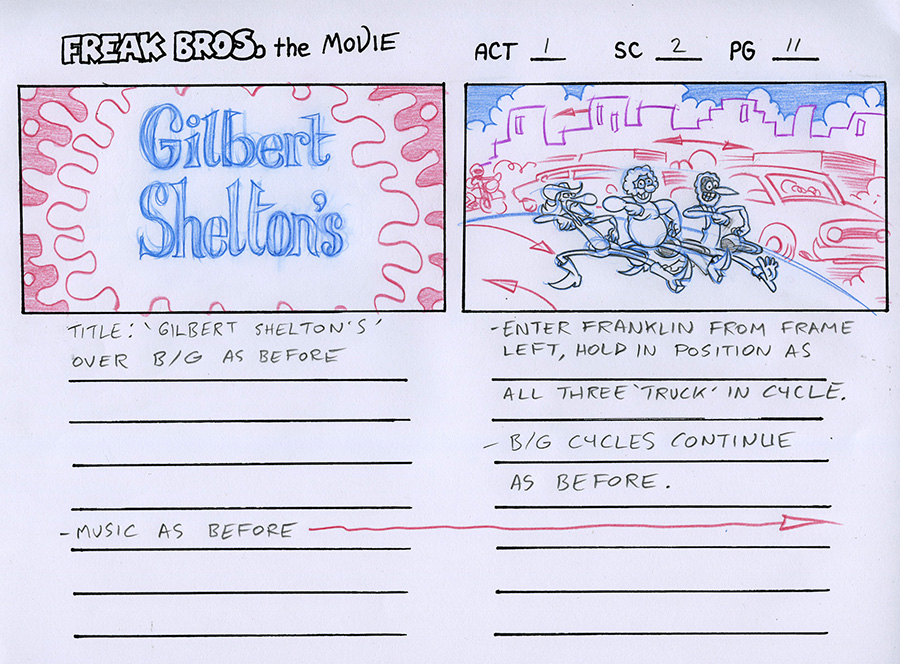 FREAK BROS. the MOVIE
ACT 1 SC 2 PG 11
Gilbert
Shelton's
TITLE: 'GILBERT SHELTON'S'
OVER B/G AS BEFORE
- MUSIC AS BEFORE
- ENTER FRANKLIN FROM FRAME
LEFT, HOLD IN POSITION AS
ALL THREE 'TRUCK' IN CYCLE.
- B/G CYCLES CONTINUE
AS BEFORE.